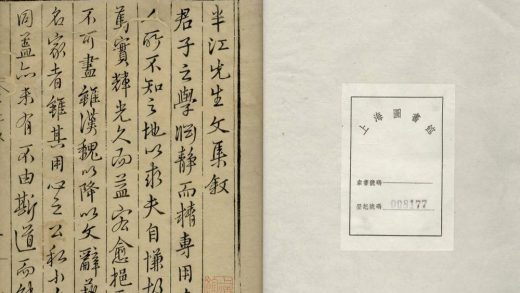 半江先生文集叙
君子之學胸静而精專用
人所不知之地以求夫自慊
篤實輝光久而益宏愈挹而
不可盡雖漢魏以降以文辭
名家者雖其用心之公私小
同盖亦未有不由斯道而
上海圖書館
索書號碼
登記號碼 008177